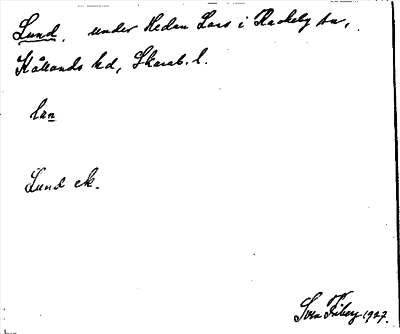 Lund. under Hedan Lars i Rackeby sn,
Kållands hd, Skarab. l.
lun
Lund ek.
Sven Friberg 1927.